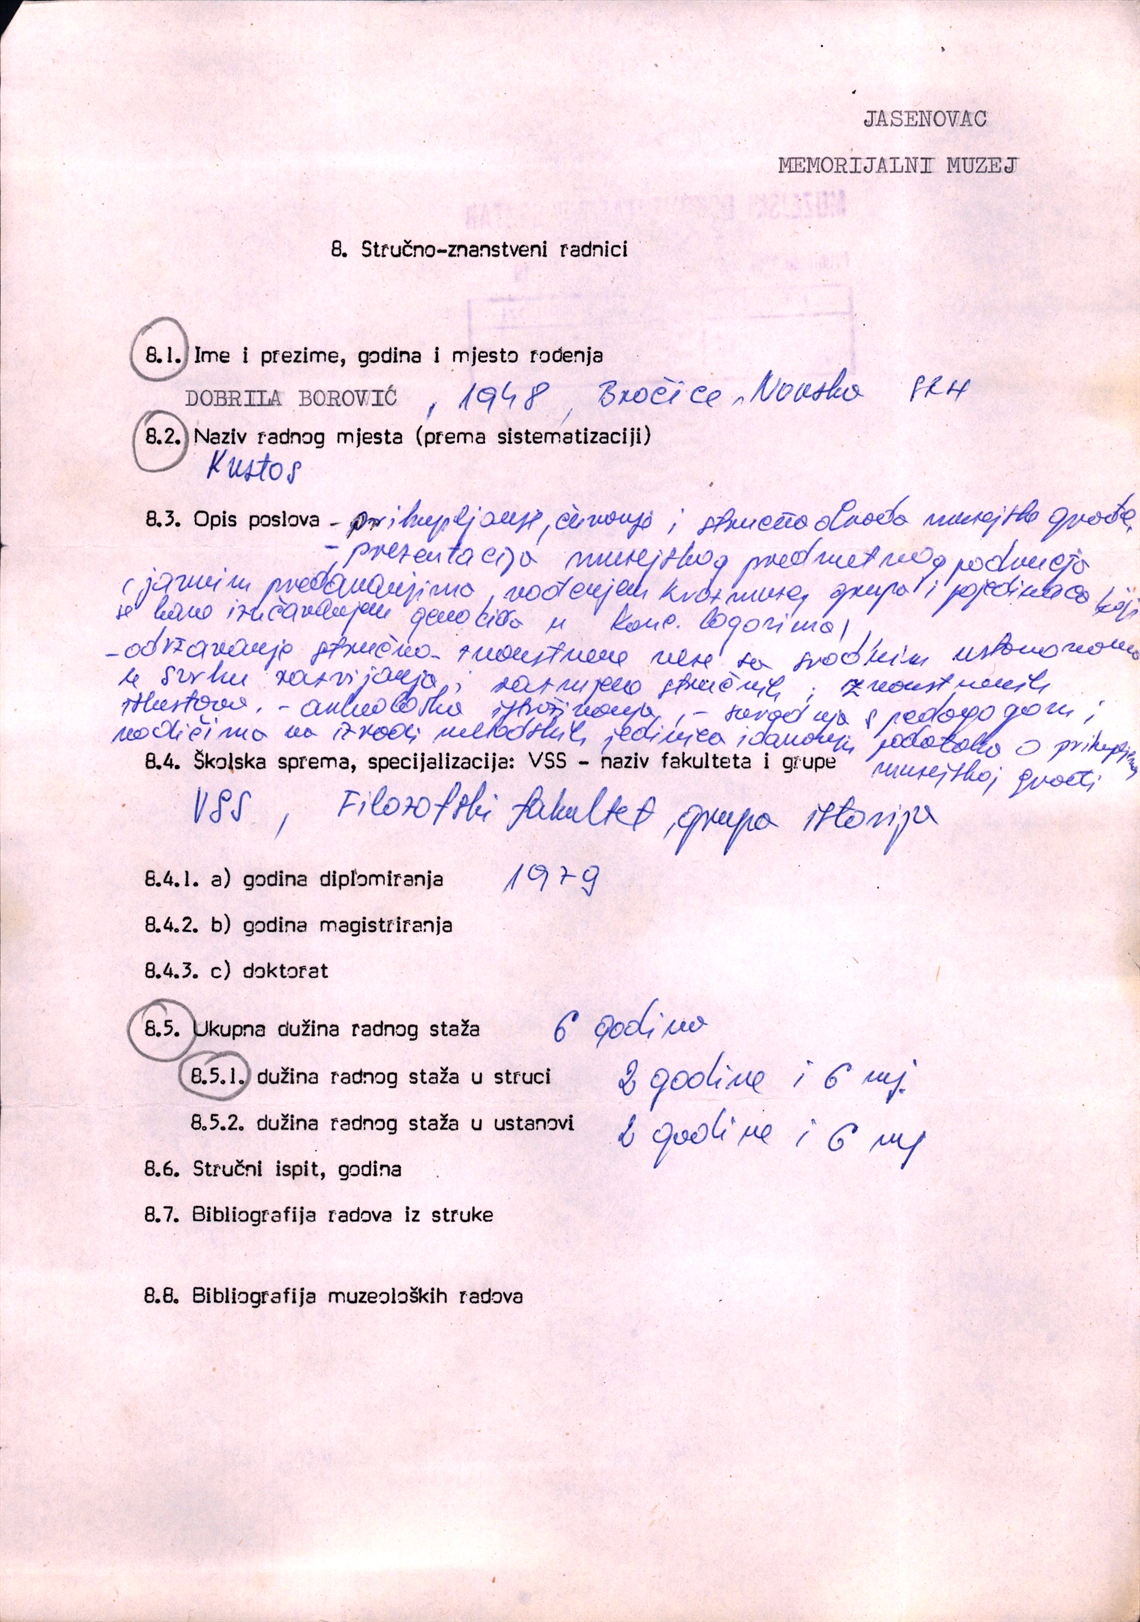 JASENOVAC
MEMORIJALNI MUZEJ
8. Stručno-znanstveni radnici
8.1. Ime i prezime, godina i mjesto rođenja
DOBRILA BOROVIĆ , 1948 , Bročice, Novska SRH
8.2. Naziv radnog mjesta (prema sistematizaciji)
Kustos
8.3. Opis poslova - prikupljanje, čuvanje i stručna obrada muzejske građe,
- prezentacija muzejskog predmetnog područja
javnim predavanjima, vođenjem kroz muzej grupa i pojedinaca koji
se bave izučavanjem genocida u konc. logorima,
- održavanje stručno-znanstvene veze sa srodnim ustanovama
u svrhu razvijanja i razmjene stručnih i znanstvenih
iskustava. - istraživanja, - suradnja s pedagogom i
vodičima na izradi metodskih jedinica i davanju podataka o prikupljenoj
muzejskoj građi
8.4. Školska sprema, specijalizacija: VSS - naziv fakulteta i grupe
VSS , Filozofski fakultet, grupa istorija
8.4.1. a) godina diplomiranja 1979
8.4.2. b) godina magistriranja
8.4.3. c) doktorat
8.5. Ukupna dužina radnog staža 6 godina
8.5.1. dužina radnog staža u struci 2 godine i 6 mj.
8.5.2. dužina radnog staža u ustanovi 2 godine i 6 mj
8.6. Stručni ispit, godina
8.7. Bibliografija radova iz struke
8.8. Bibliografija muzeoloških radova